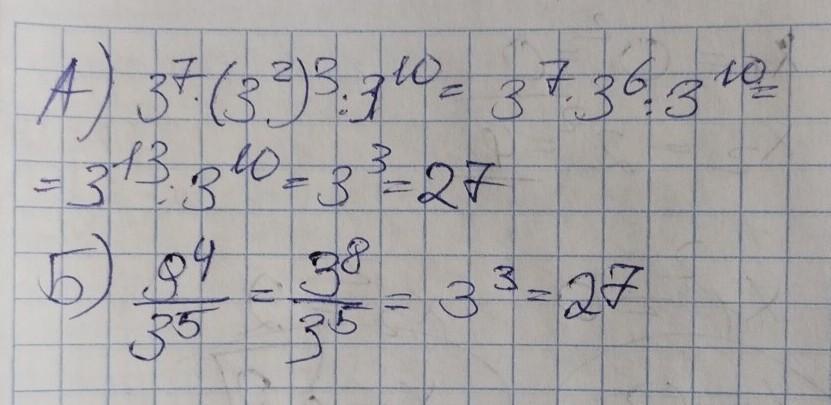 А) 3⁷·(3²)³:3¹⁰= 3⁷·3⁶:3¹⁰=
=3¹³:3¹⁰=3³=27
Б) 9⁴/3⁵ = 3⁸/3⁵ = 3³=27